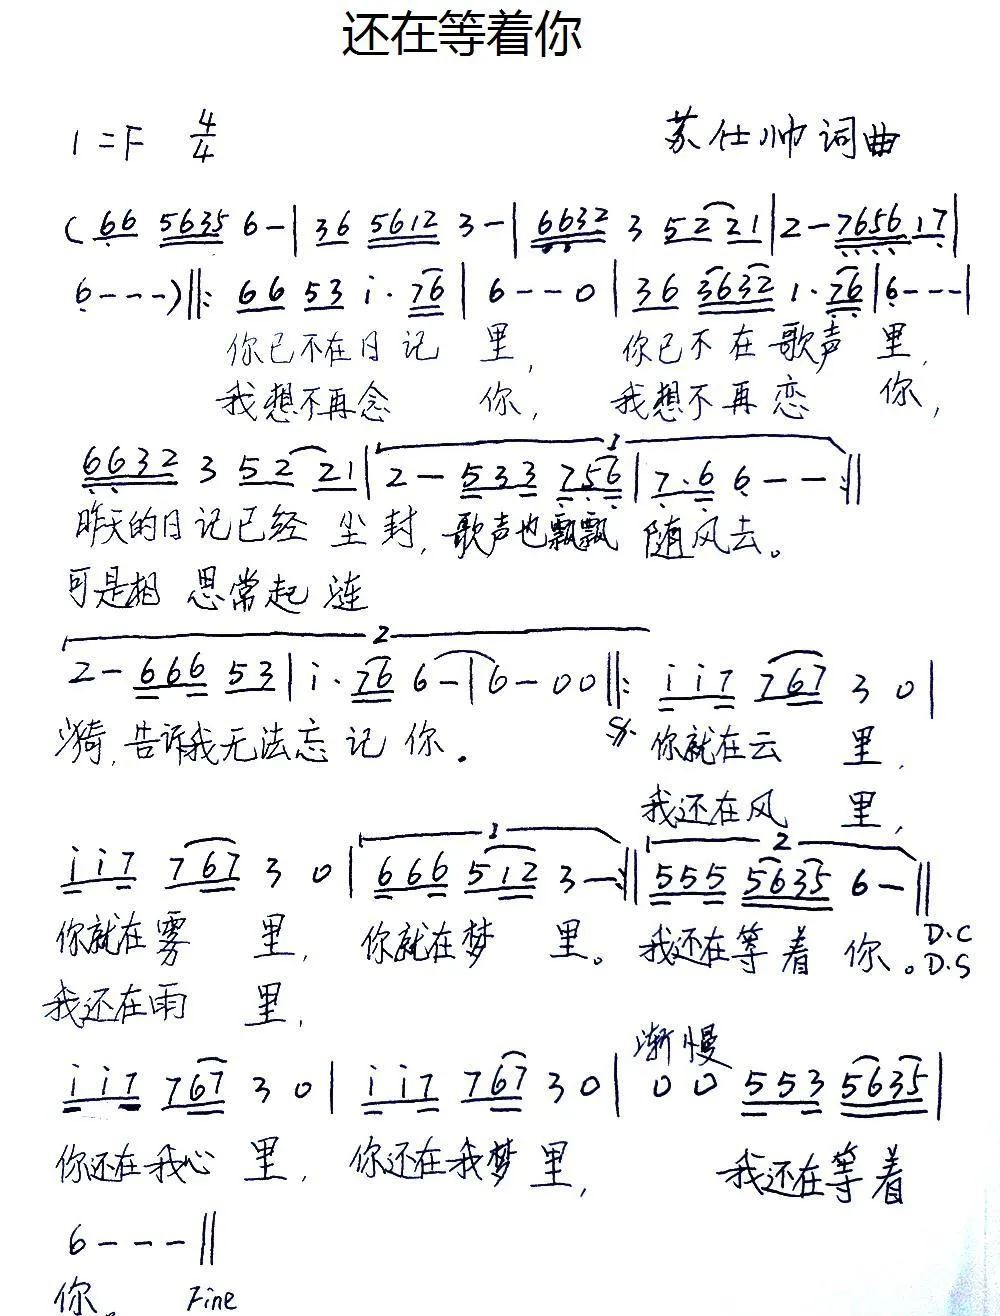 还在等着你
1=F 4/4 苏仕帅词曲
( 66 5635 6-|36 5612 3-|6632 3 52 21|2-7656 17|
6---)‖: 66 53 i·76|6--0|36 3632 1·76|6---|
你已不在日记 里, 你已不在歌声 里,
我想不再念 你, 我想不再恋 你,
6632 3 52 21|2-533 756|7·6 6--:‖
1
昨天的日记已经 尘封,歌声也飘飘 随风去。
可是相 思常起 涟
2
2-666 53|i·76 6-|6-00‖: i i7 767 3 0|
漪,告诉我无法忘记你。 你就在云 里,
我还在风 里,
i i7 767 3 0|666 512 3-:‖555 5635 6-‖
1 2
你就在雾 里, 你就在梦 里。我还在等着 你。D.C
D.S
我还在雨 里,
渐慢
i i7 767 3 0|i i7 767 3 0|0 0 553 5635|
你还在我心 里, 你还在我梦里, 我还在等着
6---‖
你。 Fine